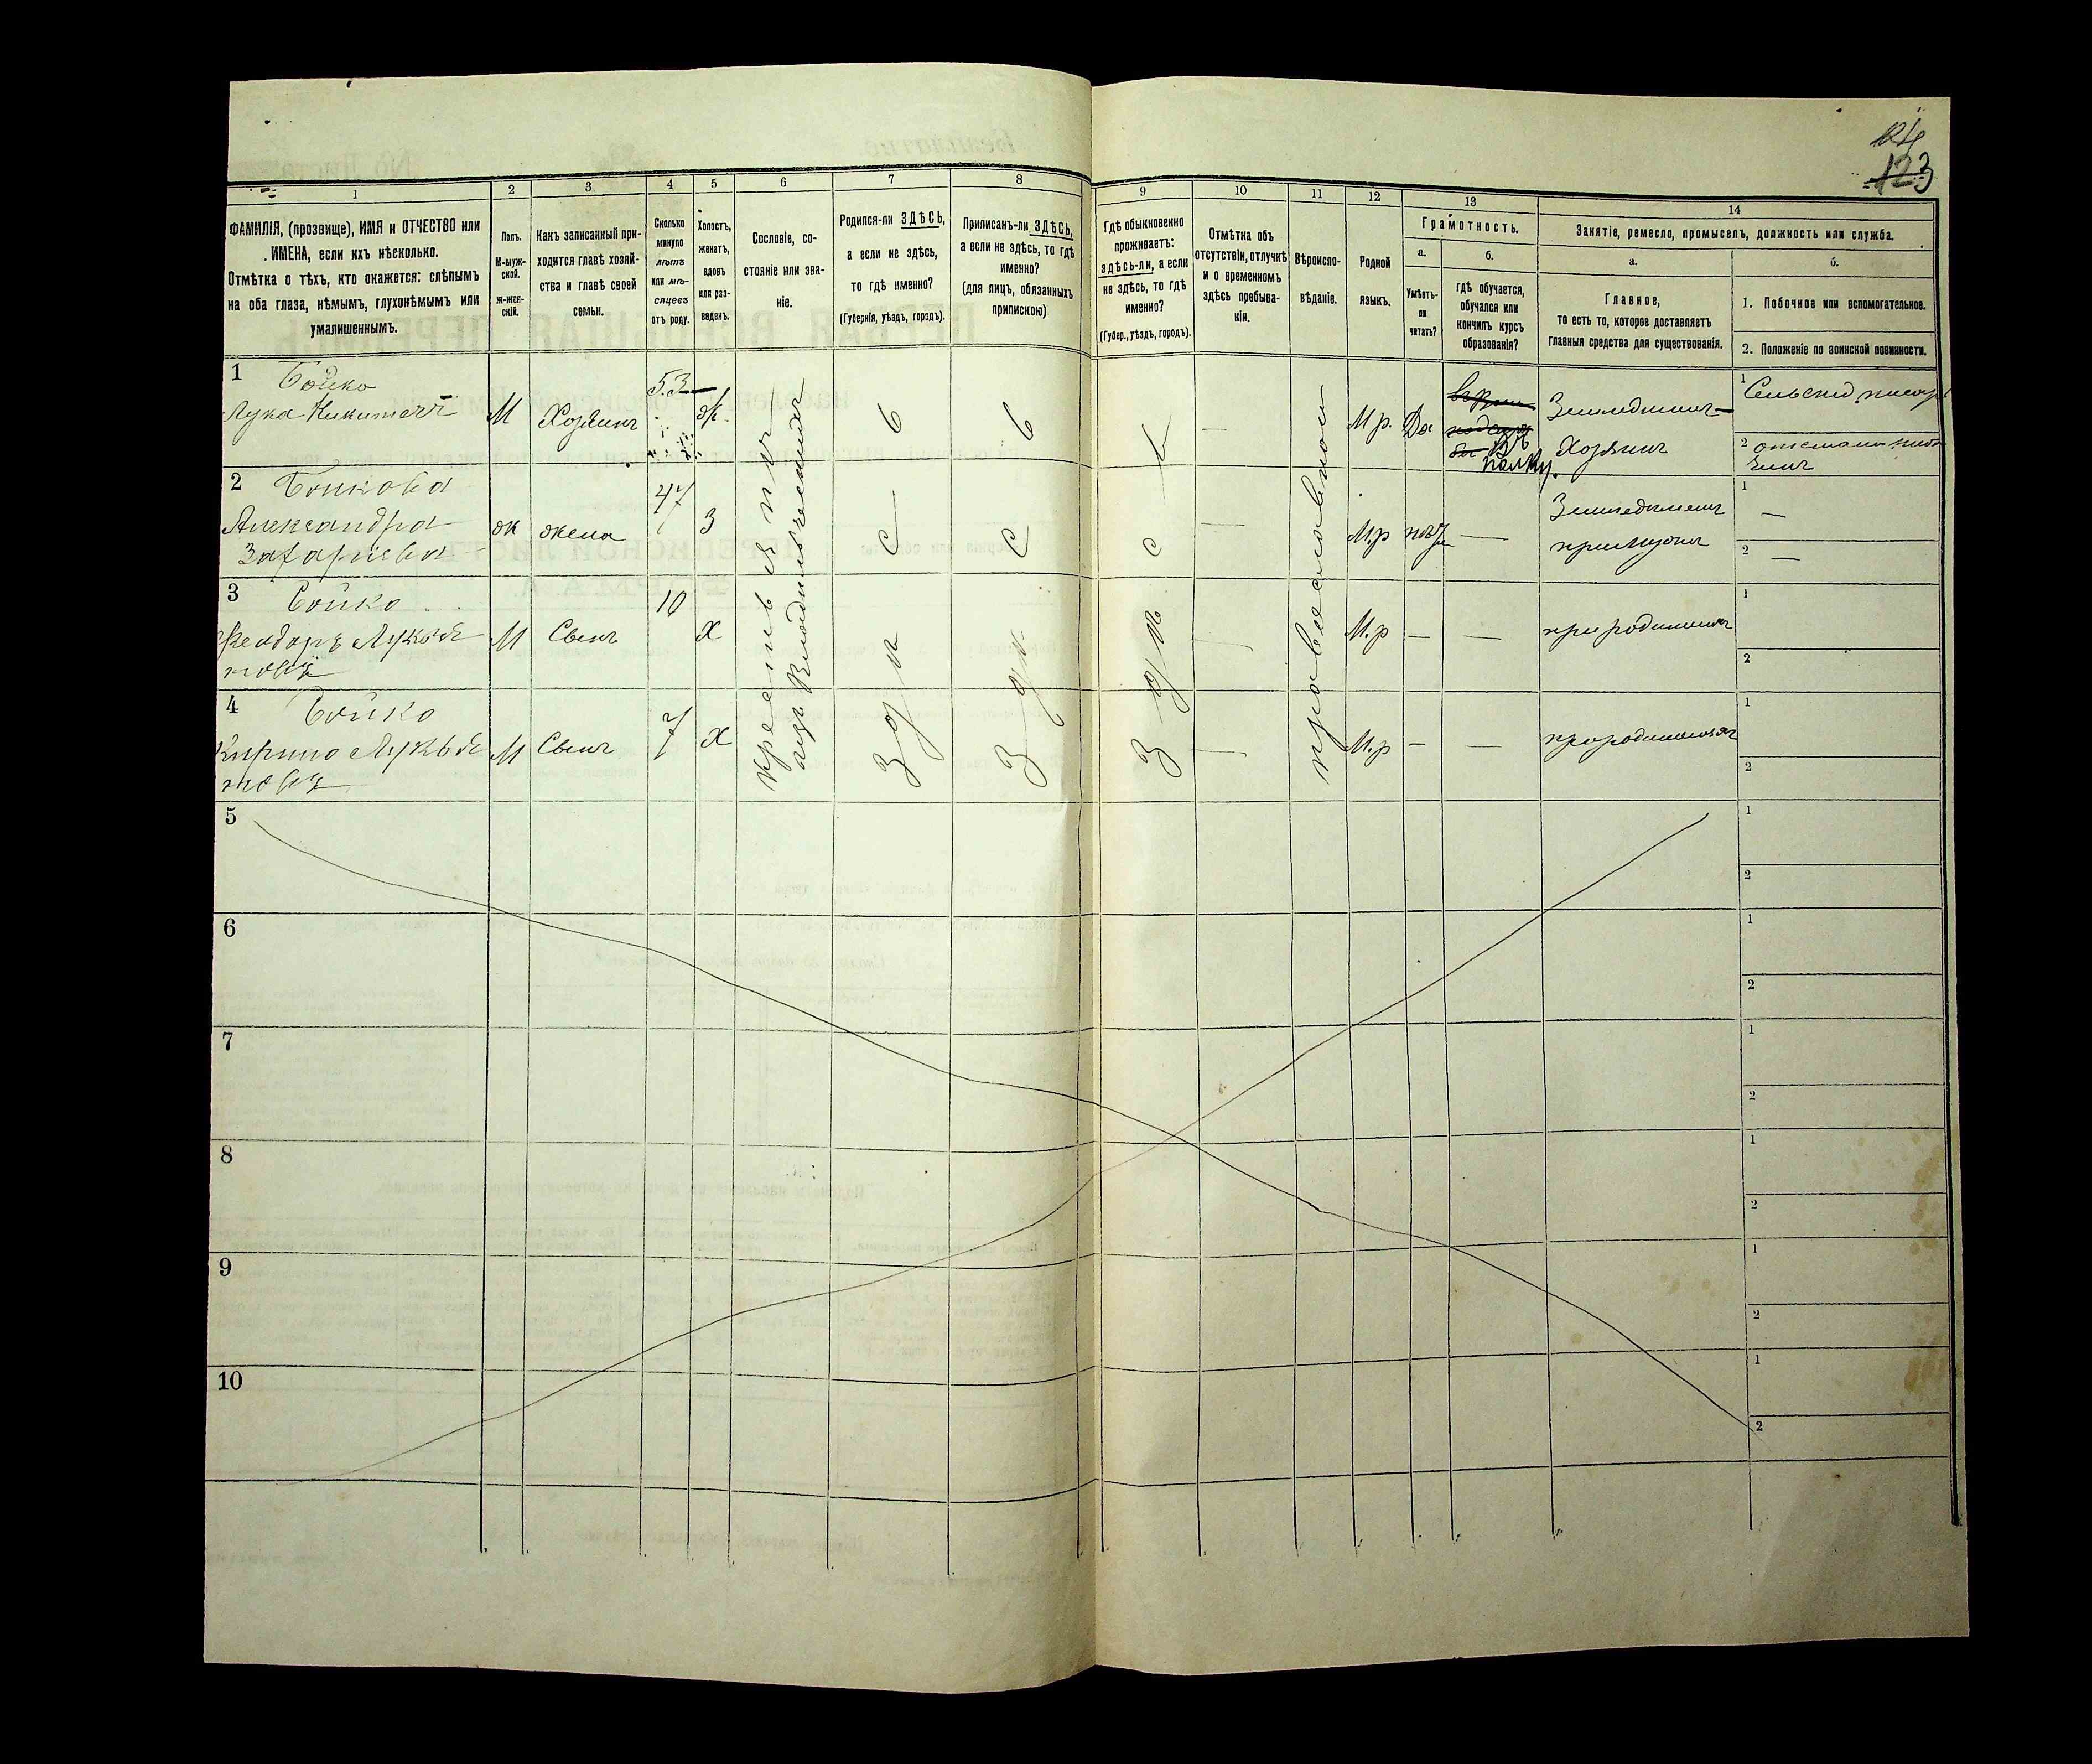 124
123
1
2
3
4
5
6
7
8
9
10
11
12
13
14
ФАМИЛІЯ, (прозвище), ИМЯ и ОТЧЕСТВО или
ИМЕНА, если ихъ нѣсколько.
Отмѣтка о тѣхъ, кто окажется: слѣпымъ
на оба глаза, нѣмымъ, глухонѣмымъ или
умалишеннымъ.
Полъ.
М-муж-
ской.
Ж-жен-
скій.
Какъ записанный при-
ходится главѣ хозяй-
ства и главѣ своей
семьи.
Сколько
минуло
лѣтъ
или мѣ-
сяцевъ
отъ роду.
Холостъ,
женатъ,
вдовъ
или раз-
веденъ.
Сословіе, со-
стояніе или зва-
ніе.
Родился-ли ЗДѢСЬ,
а если не здѣсь,
то гдѣ именно?
(Губернія, уѣздъ, городъ).
Приписанъ-ли ЗДѢСЬ,
а если не здѣсь, то гдѣ
именно?
(для лицъ, обязанныхъ
припискою)
Гдѣ обыкновенно
проживаетъ:
здѣсь-ли, а если
не здѣсь, то гдѣ
именно?
(Губер., уѣздъ, городъ).
Отмѣтка объ
отсутствіи, отлучкѣ
и о временномъ
здѣсь пребыва-
ніи.
Вѣроиспо-
вѣданіе.
Родной
языкъ.
Грамотность.
а.
Умѣетъ-
ли
читать?
б.
гдѣ обучается,
обучался или
кончилъ курсъ
образованія?
Занятіе, ремесло, промыселъ, должность или служба.
а.
Главное,
то есть то, которое доставляетъ
главныя средства для существованія.
б.
1. Побочное или вспомогательное.
2. Положеніе по воинской повинности.
1 Бойко
Лука Никитичъ
М
Хозяинъ
53
ж.
М р.
Да
въ
полку.
Хозяинъ
1 Сельский писарь
2
2 Бойкова
Александра
Захариева
ж
жена
47
З
М.р
1 —
2 —
3 Бойко
М
Сынъ
10
Х
М.р
—
—
1
2
4 Бойко
М
Сынъ
7
Х
М.р
—
—
1
2
Здесь
Здесь
Здесь
православной
5
1
2
6
1
2
7
1
2
8
1
2
9
1
2
10
1
2